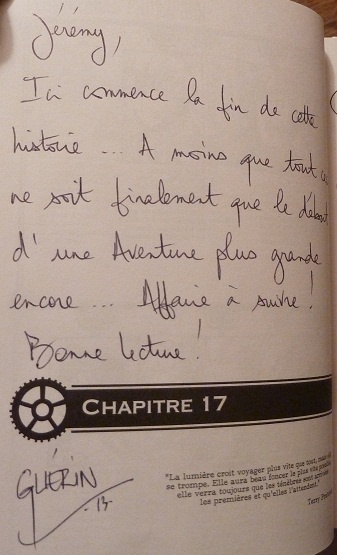 Jérémy,
Ici commence la fin de cette
histoire ... A moins que tout
ne soit finalement que le début
d'une Aventure plus grande
encore ... Affaire à suivre !
Bonne lecture !
CHAPITRE 17
GUÉRIN
-13-
"La lumière croit voyager plus vite que tout, mais
se trompe. Elle aura beau foncer le plus vite possible,
elle verra toujours que les ténèbres sont arrivées
les premières et qu'elles l'attendent."
Terry